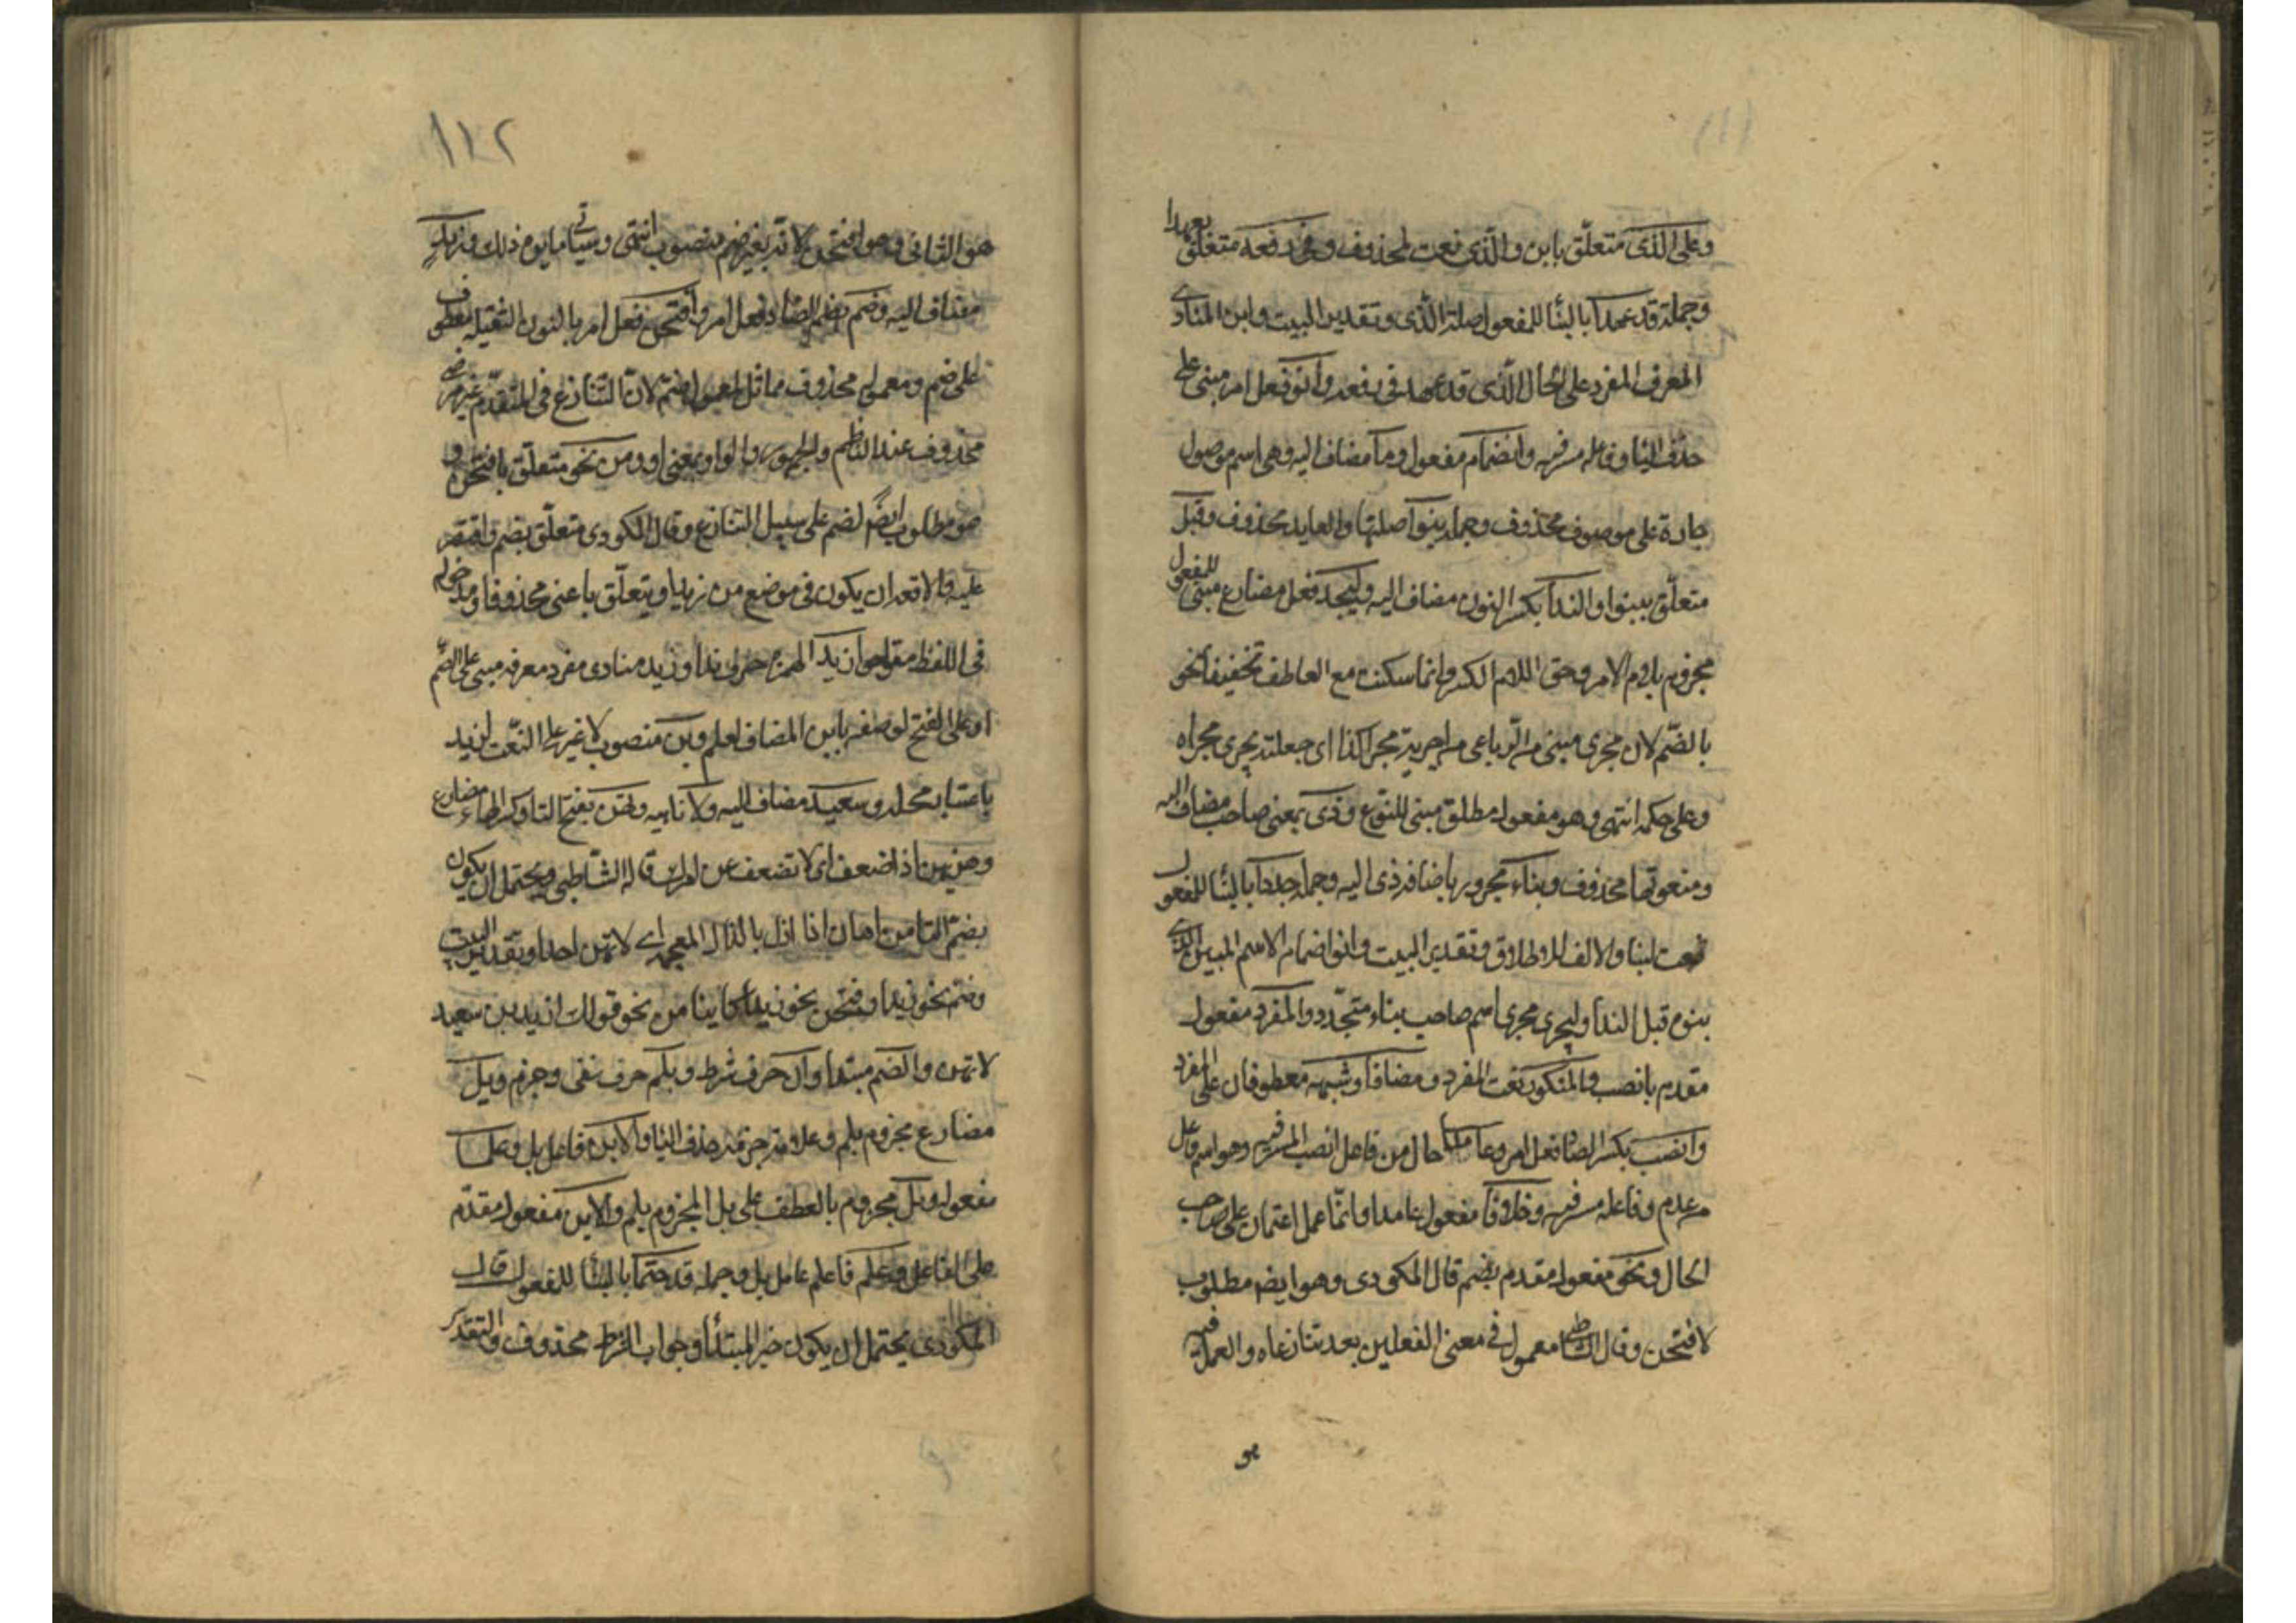 وعلى الذى متعلّق بابن والّذى نعت لمحذوف وفى رفعه متعلّق بعهدا
وجملة قد عهدا بالبنا للمفعول صلة الّذى وتقدير البيت وابن المنادى
المعرف المفرد على الحال الّذى قد عهد فى رفعه وانو فعل امر مبنى على
حذف اليا وفاعله مستتر فيه وانضمام مفعول وما مضاف اليه وهى اسم موصول
جارة على موصوف محذوف وجملة بنوا صلتها والعايد محذوف وقبل
متعلّق ببنوا والندا بكسر النون مضاف اليه وليجر فعل مضارع مبنى للمفعول
مجزوم بلام الامر وحق اللام الكسر وانما سكنت مع العاطف تخفيفا نحو
بالضّم لان مجرى مبنى من الرّباعى من اجريته مجرا كذا اى جعلته يجرى مجراه
وعلى حكمه انتهى وهو مفعول مطلق مبنى للنّوع وذى بمعنى صاحب مضاف اليه
ومنعوتها محذوف وبناء مجرور باضافة ذى اليه وجملة جددا بالبنا للمفعول
نعت لبنا والالف للاطلاق وتقدير البيت وانوا ضمام الاسم المبين الذى
بنوه قبل الندا وليجرى مجرى اسم صاحب بناء متجّدد والمفرد مفعول
مقدم بانصب والمنكور نعت المفرد ومضافا وشبهه معطوفان على المفرد
وانصب بكسر الصاد فعل امر وعادما حال من فاعل انصب المستتر فيه وهو اسم فاعل
من عدم وفاعله مستتر فيه وخلافا مفعول عادما وانّما عمل اعتمان على صاحب
الحال ونحو مفعول مقدم بضم قال المكودى وهو ايضم مطلوب
لافتحن وقال الشاطبى معمول فى معنى الفعلين بعد تنازعاه والعمل فيه
هو
١١٢
هو الثانى وهو افتحن لانّه بغير ضم منصوب انتهى وسياتى مايوم ذلك وزيد
مضاف اليه وضم بضم الضاد فعل امر وافتحن فعل امر بالنون الثقيلة معطوف
على ضم ومعموله محذوف مماثل لمعمول ضم لانّ التنازع فى المتقدّم غير مرضى
محذوف عند الناظم والجمهور والواو بمعنى او ومن نحو متعلّق بافتحن و
هو مطلوب ايضًا لضم على سبيل التنازع وقال المكودى متعلّق بضم واقتصر
عليه والاقعد ان يكون فى موضع من زيد او يتعلّق باعنى محذوفا ومدخوله
فى اللفظ مقول ازيد الهمزة حرف ندا وزيد منادى مفرد معرفه مبنى على الضّم
او على الفتح لوصفه بابن المضاف لعلم وبن منصوب لا غير على النّعت لزيد
باعتبار محله وسعيد مضاف اليه ولا ناهيه وتهن بفتح التا وكسر الهاء مضارع
وهن يهن اذا ضعف اى لا تضعف عن امرك قاله الشّاطبى ويحتمل ان يكون
بضم التا من اهان اذا اذل بالذال المعجمه اى لا تهن احدا وتقدير البيت
وضم نحو زيد وافتحن نحو زيد كاينا من نحو قولك ازيد بن سعيد
لا تهن والضم مبتدا وان حرف شرط وبلم حرف نفى وجزم ويل
مضارع مجزوم بلم وعلامة جزمه حذف اليا والابن فاعل يل وعلما
مفعوله ويل مجزوم بالعطف على يل المجزوم بلم والابن مفعول مقدّم
على الفاعل وعلم فاعله عامل يل وجملة قد حتما بالبنا للمفعول قال
المكودى يحتمل ان يكون خبر المبتدأ وجواب الشرط محذوف والتقدير